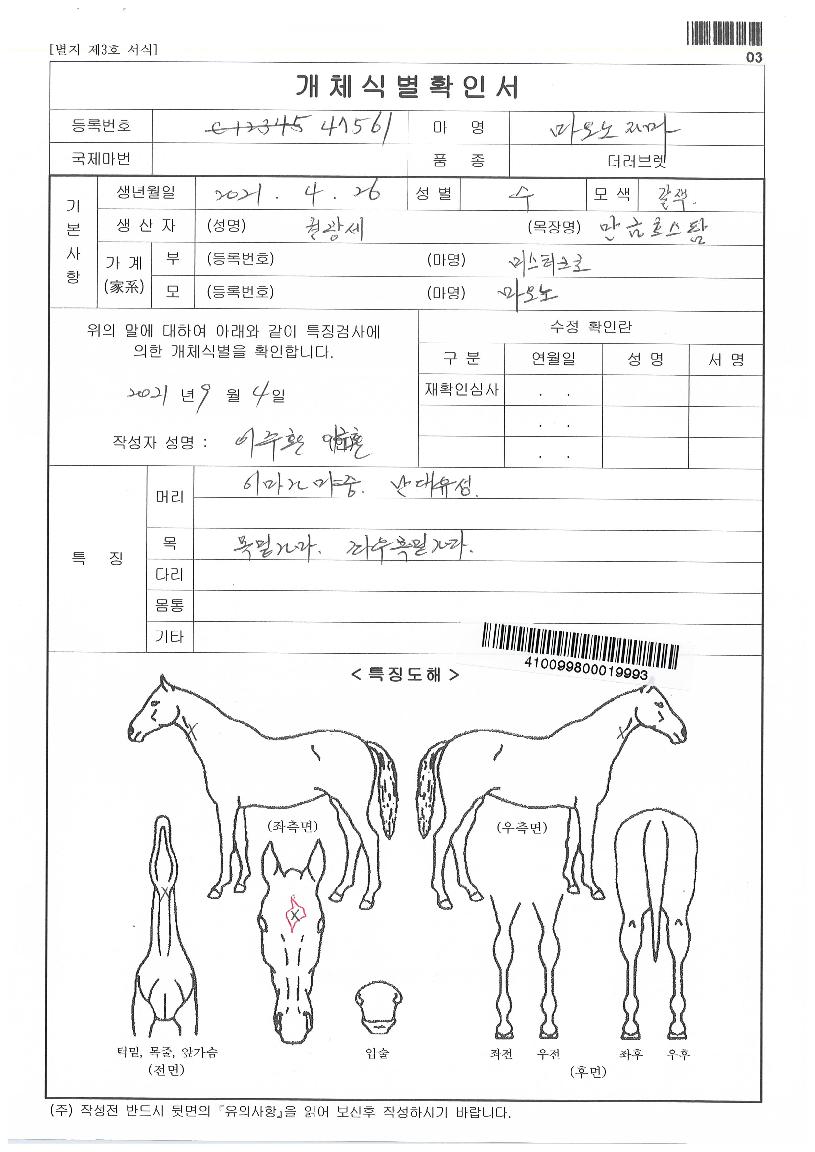 [별지 제3호 서식]
03
개체식별확인서
등록번호 C12345 47561 마 명 마오노지마
국제마번 품 종 더러브렛
기본사항
생년월일 2021 . 4 . 26 성별 수 모색 갈색.
생산자 (성명) 권광세 (목장명) 만금호스팜
가계(家系) 부 (등록번호) (마명) 미스터크로
모 (등록번호) (마명) 마오노
위의 말에 대하여 아래와 같이 특징검사에
의한 개체식별을 확인합니다.
2021 년 9 월 4 일
작성자 성명 : 이주환
수정 확인란
구분 연월일 성명 서명
재확인심사 . .
. .
. .
특 징
머리 이마가마중. 난대유성.
목 목밑가마. 좌우목밑가마.
다리
몸통
기타
410099800019993
<특징도해>
(좌측면) (우측면)
턱밑, 목줄, 앞가슴 입술 좌전 우전 좌후 우후
(전면) (후면)
(주) 작성전 반드시 뒷면의 『유의사항』을 읽어 보신후 작성하시기 바랍니다.